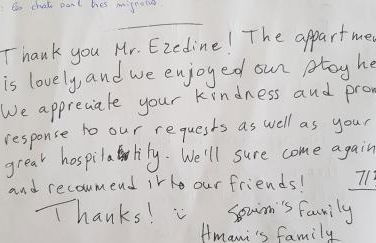 les chats sont très mignons.
Thank you Mr. Ezedine! The appartmen
is lovely, and we enjoyed our stay he
We appreciate your kindness and prom
response to our requests as well as your
great hospitality. We'll sure come again
and recommend it to our friends!
Thanks! Souissi's family
Hmani's family